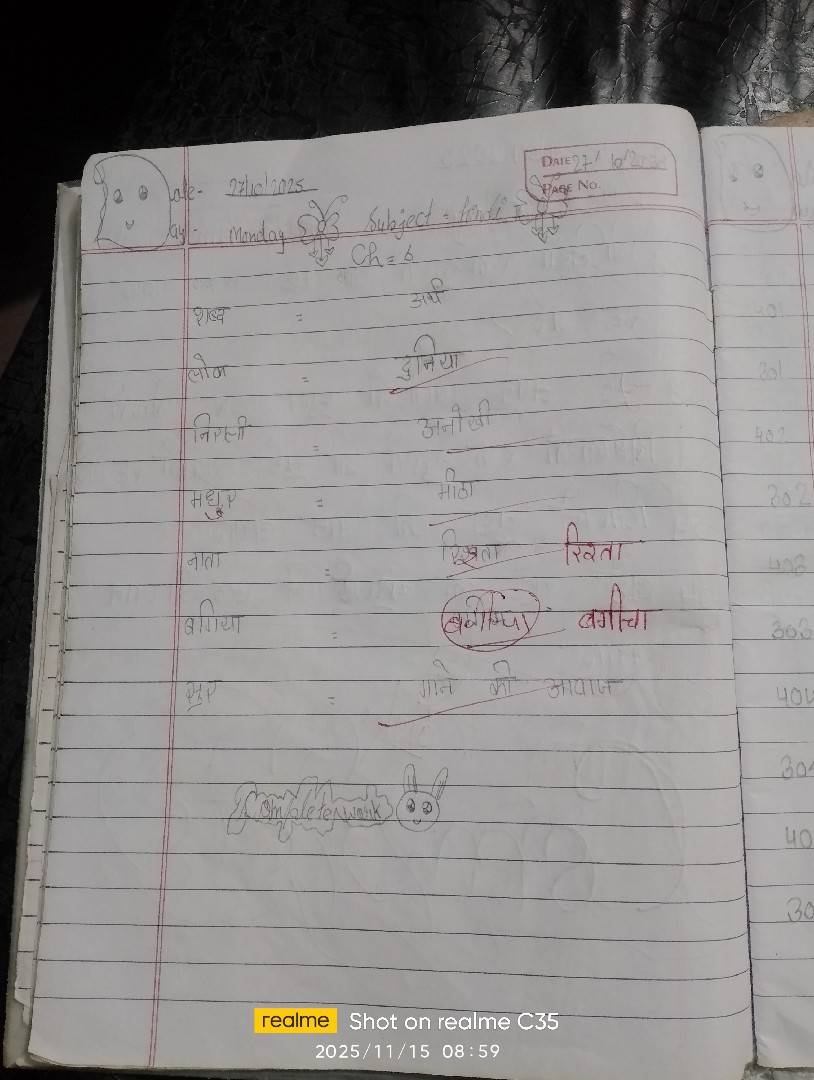 Date - 27/10/2025
DATE 27/10/2025
PAGE No.
Day - Monday Subject = Hindi
Ch = 6
शब्द = अर्थ
लोक = दुनिया
निराली = अनोखी
मधुर = मीठा
नाता = रिश्ता रिश्ता
बगिया = बगीचा
सुर = गाने की आवाज
Complete work
401
301
402
302
403
303
404
304
40
30
realme Shot on realme C35
2025/11/15 08:59